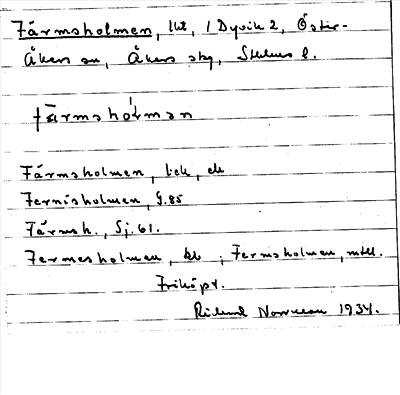 Färmsholmen, lht, / Dyvik 2, Öster-
Åkers sn, Åkers skg, Sthlms l.
färmshòlmən
Färmsholmen, bek, ek
Fermsholmen, G.85
Färmsh., Sj. 61.
Fermesholmen, kb ; Fermsholmen, mtl.
Friköpt.
Rickard Norrman 1934.